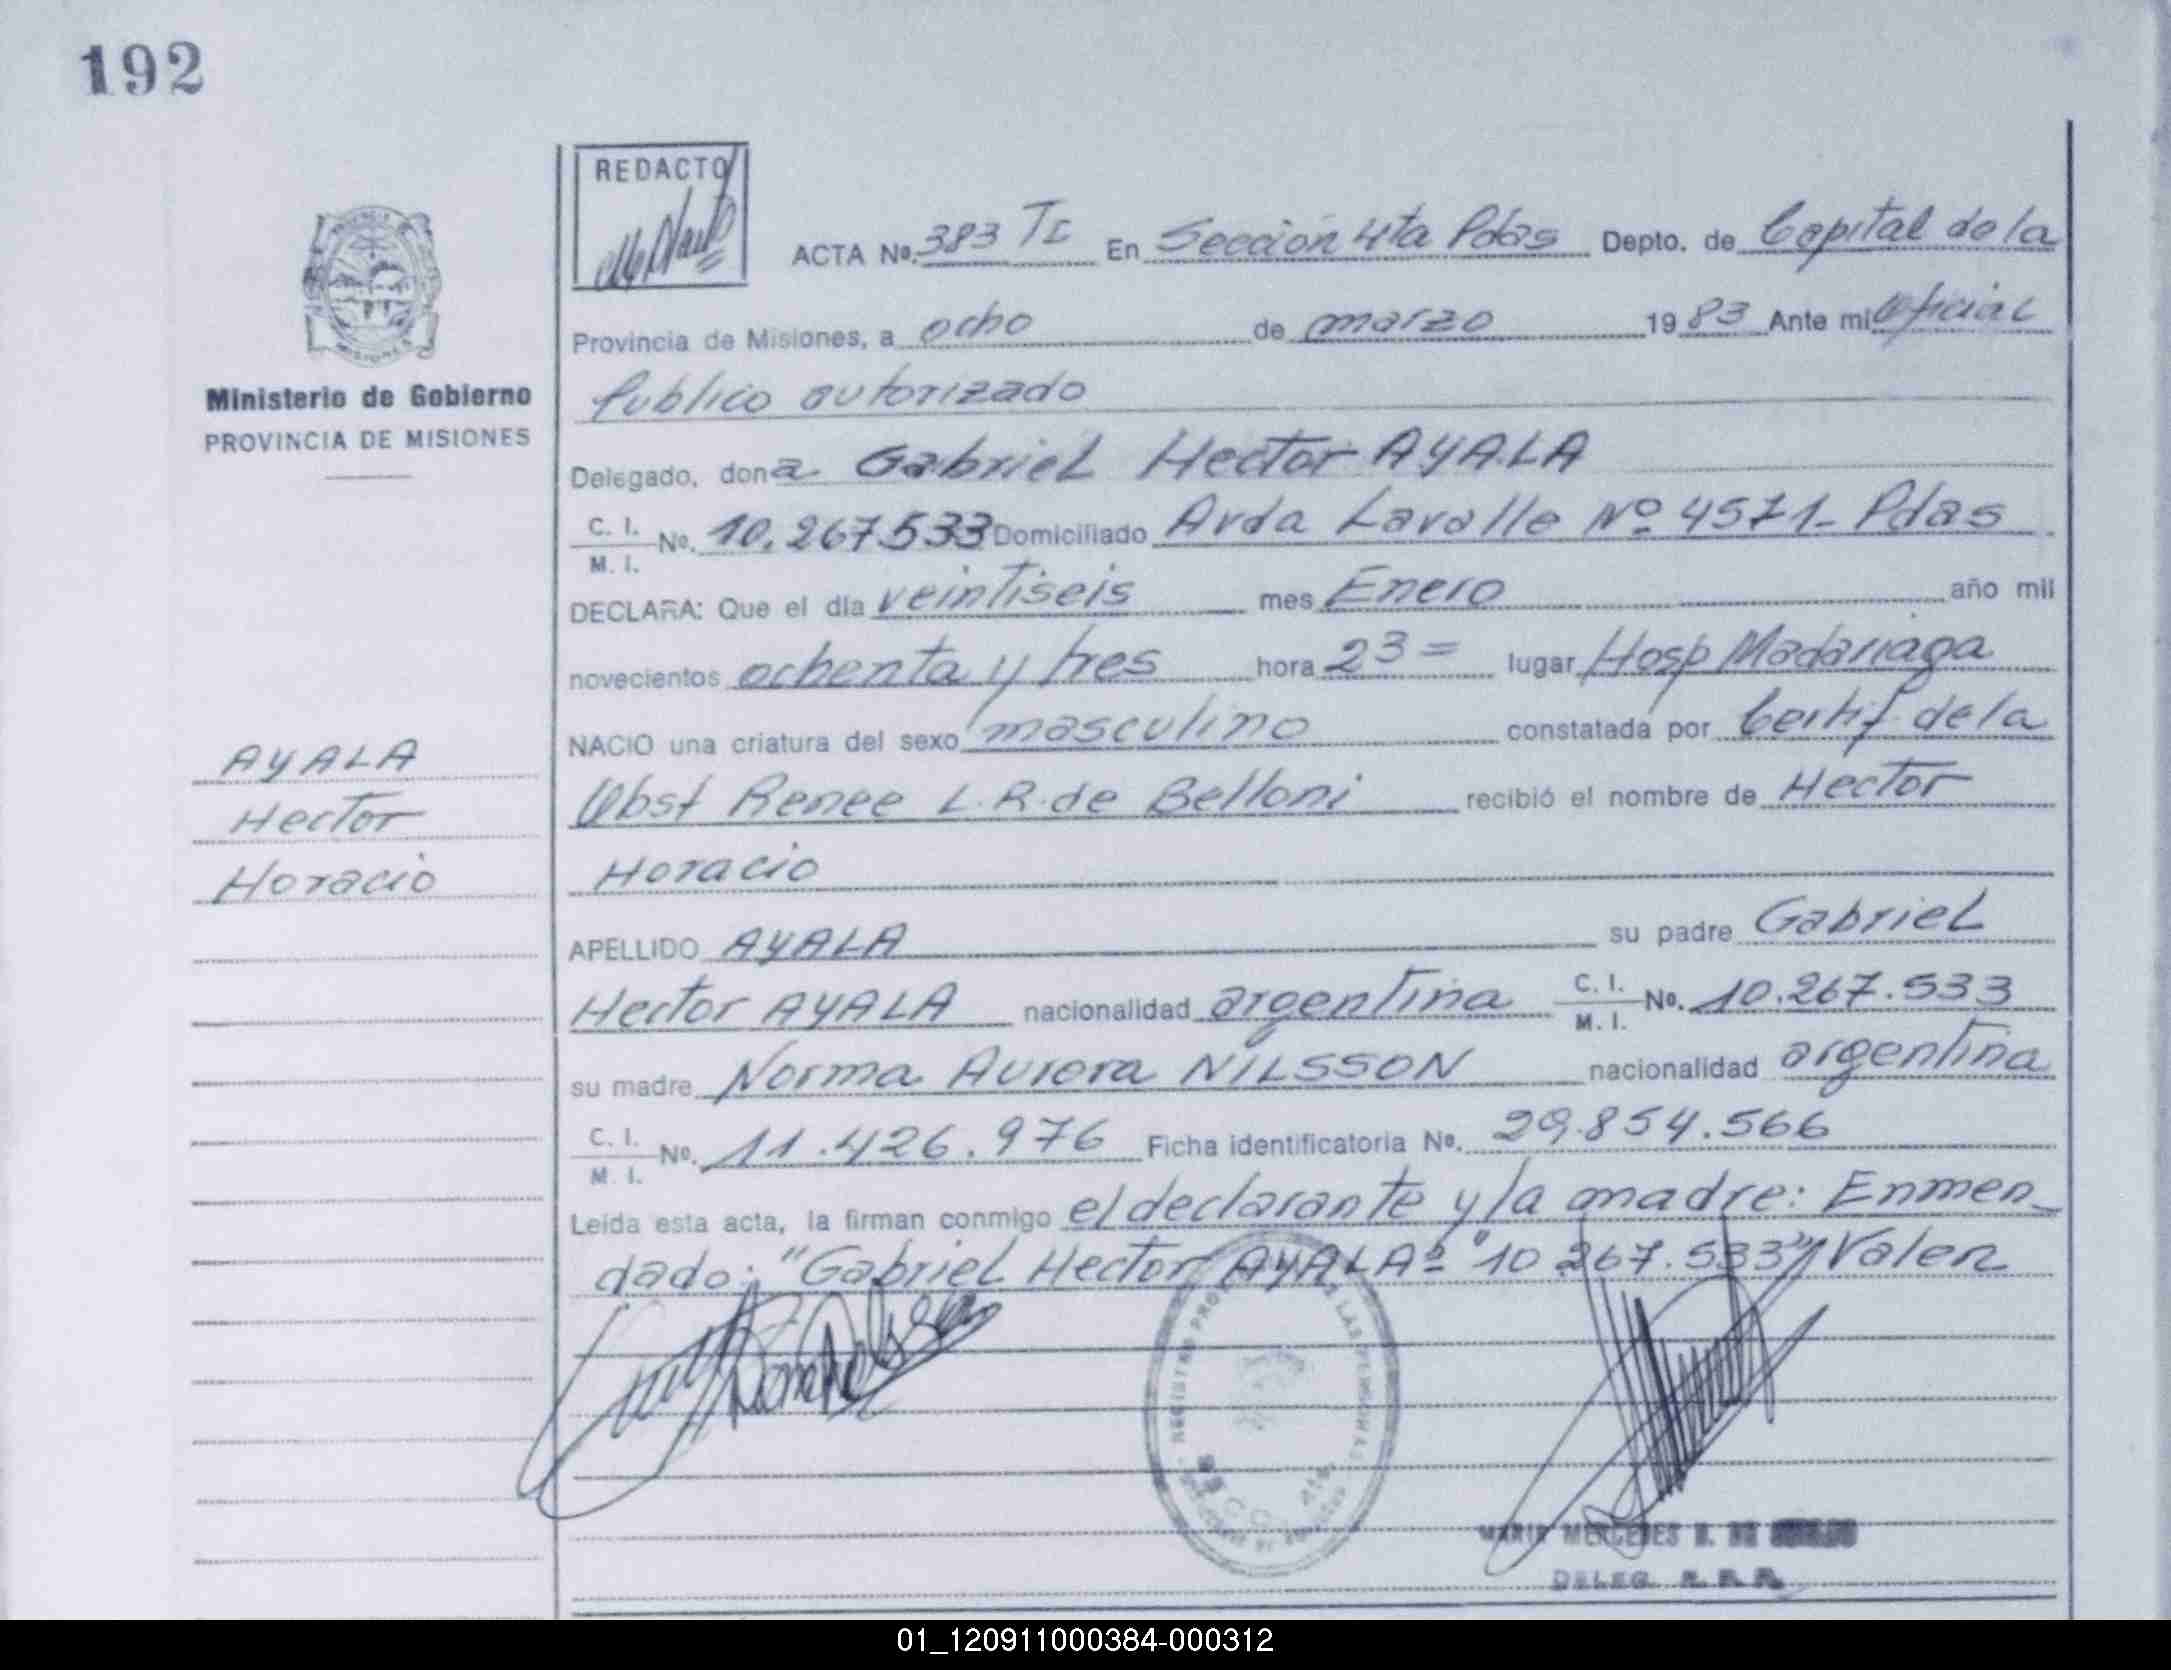 192
REDACTO
ACTA Nº. 383 TI En Sección 4ta Pdas Depto. de Capital de la
Provincia de Misiones, a ocho de marzo 1983 Ante mi Oficial
Público autorizado
Ministerio de Gobierno
PROVINCIA DE MISIONES
Delegado, don a Gabriel Hector AYALA
C. I.
M. I. Nº. 10.267.533 Domiciliado Avda Lavalle Nº 4571- Pdas
DECLARA: Que el día veintiseis mes Enero año mil
novecientos ochenta y tres hora 23= lugar Hosp Madariaga
NACIO una criatura del sexo masculino constatada por Certif de la
Obst Renee L.R. de Belloni recibió el nombre de Hector
Horacio
AYALA
Hector
Horacio
APELLIDO AYALA su padre Gabriel
Hector AYALA nacionalidad argentina C. I. M. I. Nº. 10.267.533
su madre Norma Aurora NILSSON nacionalidad argentina
C. I.
M. I. Nº. 11.426.976 Ficha identificatoria Nº. 29.854.566
Leída esta acta, la firman conmigo el declarante y la madre: Enmen_
dado: "Gabriel Hector AYALA" "10 267.533" Valen
REGISTRO DE LAS PERSONAS
MARIA MERCEDES
DELEG.
01_120911000384-000312